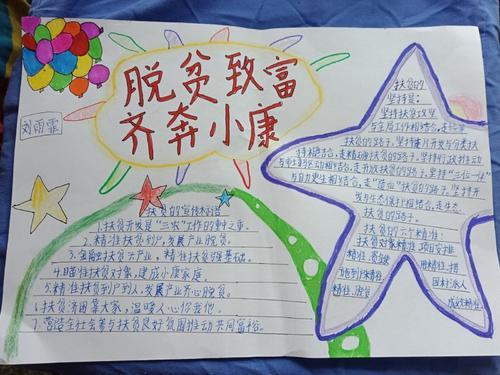 脱贫致富
齐奔小康
刘雨霏
扶贫的宣传标语
1.扶贫开发是"三农"工作的重中之重。
2.精准扶贫到户,发展产业脱贫。
4.瞄准扶贫对象,建成小康家庭
5.精准扶贫到户到人,发展产业齐心脱贫。
6.扶贫济困靠大家,温暖人心你我他。
7.营造全社会参与扶贫良好氛围推动共同富裕。
扶贫的
坚持是:
坚持扶贫攻坚
与全局工作相结合,走统筹
扶贫的路子,坚持连片开发与分类扶
持相结合,走精确扶贫的路子,坚持行政推动
与市场驱动相结合,走开放扶贫的路子,坚持"三位一体"
与自力更生相结合,走"造血"扶贫的路子,坚持开
发与生态保护相结合,走生态
扶贫的路子。
扶贫的六个精准:
扶贫对象精准,项目安排
精准,资金使用精准,措
施到户精准,因村派人
精准,脱贫成效精准。